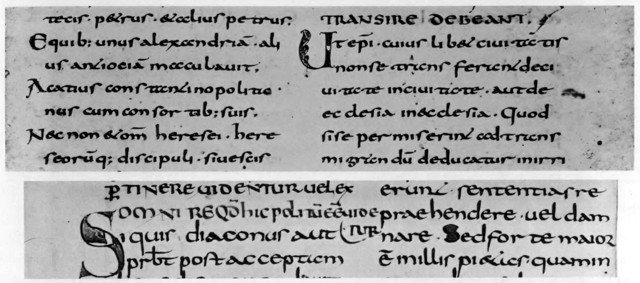 tecis. petrus. & aelius petrus.
Equib: unus alexandriam. ali
us antiociam maculauit.
Acatius constantinopolita
nus cum consortib: suis.
Nec non & om̄ heresei. here
seorumq; discipuli. siue scis
TRANSIRE DEBEANT.
Ut ep̄i. cuius libet ciuitatis
non se
uitate in ciuitate. aut de
ecclesia in ecclesia. Quod
si se permiserint ad trans
migrandū deducatur inirri
p̄TINERE UIDENTUR UEL EX
OMNI
Si quis diaconus aut TUR
prb̄t post acceptam
erunt sententias re
praehendere. uel dam
nare. Sed forte maior
quam in